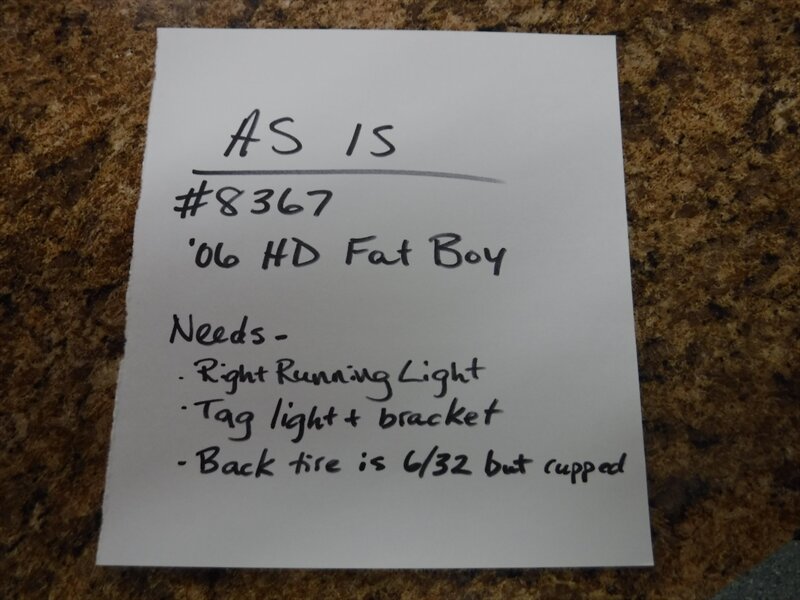 AS IS
#8367
'06 HD Fat Boy
Needs-
· Right Running Light
· Tag light + bracket
- Back tire is 6/32 but cupped